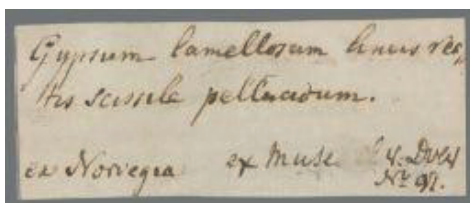 Gypsum lamellosum lineis rec,,
tis scissile pellucidum.
ex Norvegia ex Muse
No 91.